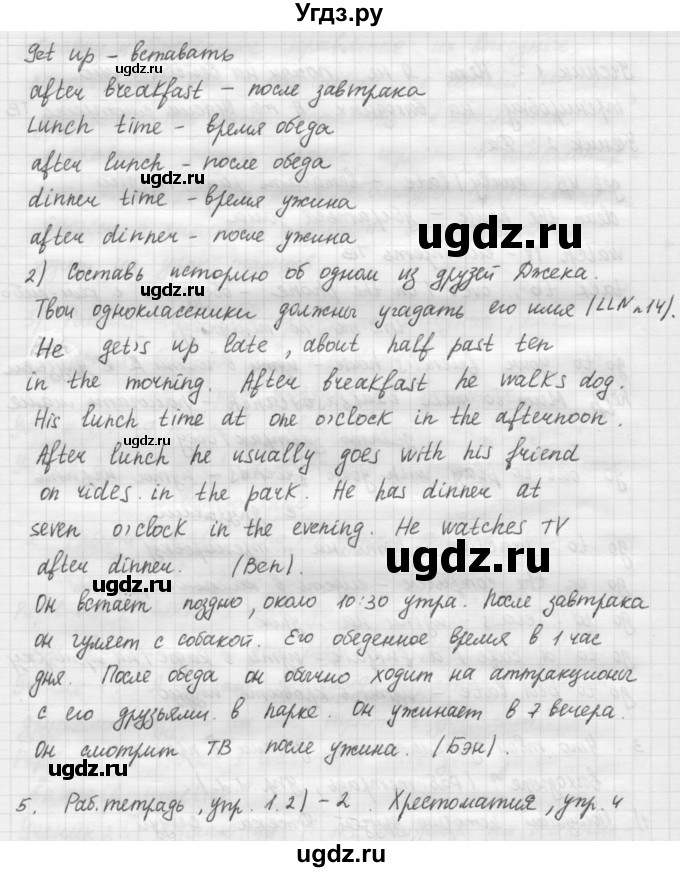 Угдз.ру
get up – вставать
ugdz.ru
after breakfast – после завтрака
Lunch time – время обеда
after lunch – после обеда
ugdz.ru
dinner time – время ужина
after dinner – после ужина
ugdz.ru
2) Составь историю об одном из друзей Джека.
Твои одноклассники должны угадать его имя (LLN n14).
He get's up late, about half past ten
ugdz.ru
in the morning. After breakfast he walks dog.
His lunch time at one o'clock in the afternoon.
ugdz.ru
After lunch he usually goes with his friend
on rides in the park. He has dinner at
seven o'clock in the evening. He watches TV
ugdz.ru
after dinner. (Ben)
ugdz.ru
Он встаёт поздно, около 10:30 утра. После завтрака
он гуляет с собакой. Его обеденное время в 1 час
дня. После обеда он обычно ходит на аттракционы
с его друзьями в парке. Он ужинает в 7 вечера.
ugdz.ru
Он смотрит ТВ после ужина. (Бэн).
ugdz.ru
5. Раб. тетрадь, упр. 1.2) – 2. Хрестоматия, упр. 4
ugdz.ru